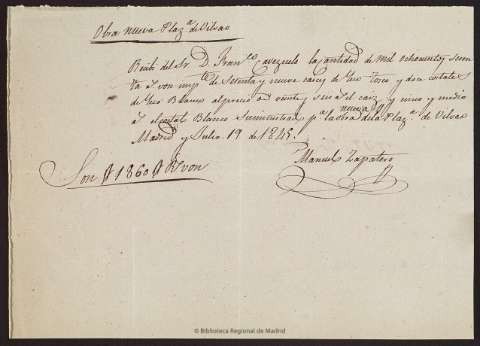 Obra nueva Plaz.ª de Bilvao
Recibí del Sr. D. Fran.co Cavezuelo la cantidad de mil ochocientos sesen
ta r.s von imp.te de setenta y nueve caices de Yeso Tosco y doce costales
de Yeso Blanco al precio de veinte y seis r.s el caiz y cinco y medio
r.s el costal Blanco Suministrado p.ª la obra nueva de la Plaz.ª de Vilvao
Madrid y Julio 19 de 1845.
Manuel Zapatero
Son # 1860 # R.s von
© Biblioteca Regional de Madrid